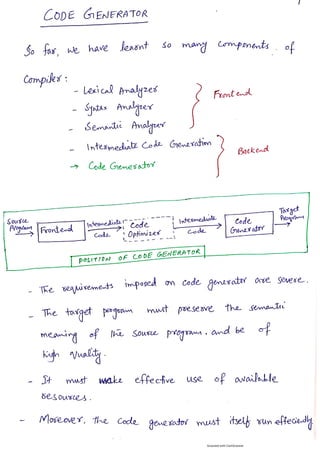 CODE GENERATOR
So far, we have learnt so many components of
Compiler :
- Lexical Analyzer
- Syntax Analyzer
- Semantic Analyzer
Frontend
- Intermediate Code Generation
→ Code Generator
Backend
Source Program
Frontend
Intermediate Code
Code Optimizer
Intermediate Code
Code Generator
Target Program
POSITION OF CODE GENERATOR
- The requirements imposed on code generator are severe.
- The target program must preserve the semantic
meaning of the source program. and be of
high quality.
- It must make effective use of available
resources.
- Moreover, the code generator must itself run effeciently
Scanned with CamScanner